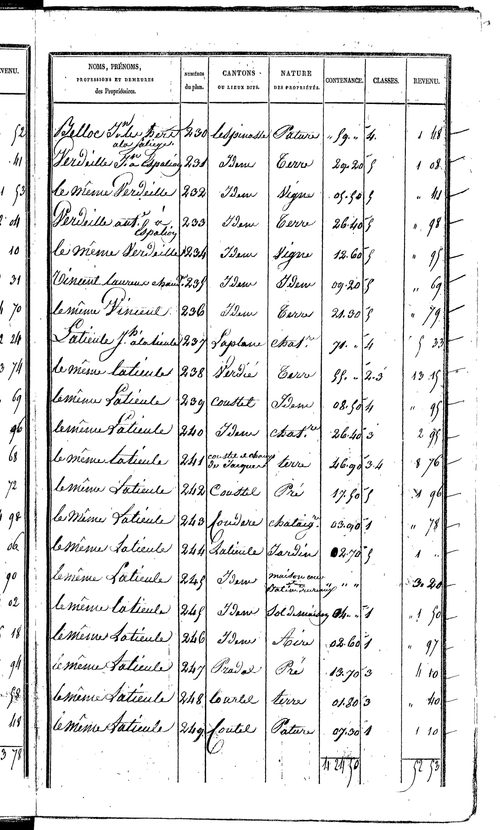 NOMS, PRÉNOMS, PROFESSIONS ET DEMEURES des Propriétaires. NUMÉROS du plan. CANTONS OU LIEUX DITS. NATURE DES PROPRIÉTÉS. CONTENANCE. CLASSES. REVENU.
VENU.
Belloc 230 Lespinasse Pature " 59 " 4 1 48
Verdeille Fᵒⁿ Espalioy 231 Idem Terre 29.20 5 1 08
le même Verdeille 232 Idem Vigne 05.50 5 " 41
Verdeille antᵉ à Espalioy 233 Idem Terre 26.40 5 " 98
le même Verdeille 234 Idem Vigne 12.60 5 " 95
Vincent Laurens 235 Idem Idem 09.20 5 " 69
le même Vincent 236 Idem Terre 21.30 5 " 79
Laticule Jʰ à laticule 237 Laplane chatʳᵉ 71. " 4 5 33
le même laticule 238 Verdié Terre 55. " 2.3 13 15
le même Laticule 239 Coustel Idem 08.50 4 " 95
le même Laticule 240 Idem chatʳᵉ 26.40 3 2 95
le même Laticule 241 coustel et champ de Jacques terre 46.90 3.4 8 76
le même Laticule 242 Coustel Pré 17.50 5 1 96
le même Laticule 243 foudere chataigʳ 03.90 1 " 78
le même Laticule 244 Laticule Jardin 02.70 5 1 "
le même Laticule 245 Idem maison " " " 30 20
le même laticule 245 Idem Sol de maison 04. " 1 1 50
le même Laticule 246 Idem Aire 02.60 1 " 97
le même Laticule 247 Pradal Pré 13.70 3 4 10
le même Laticule 248 Courtel terre 01.80 3 " 40
le même Laticule 249 Coutel Pature 07.30 1 1 10
4 24 50 52 53
52
41
1 53
2 04
10
31
4 70
2 24
3 74
69
96
68
72
4 98
06
90
02
6 18
94
58
48
3 78